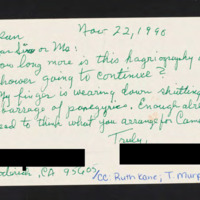 Nov 22, 1990
Dear Sir or Ms:
how long more is this hagiography
shower going to continue?
My finger is wearing down shutting
barrage of panegyric. Enough alre
need to think what you arrange for
Truly,
, CA 9560
cc: Ruth Kane, T. Murp